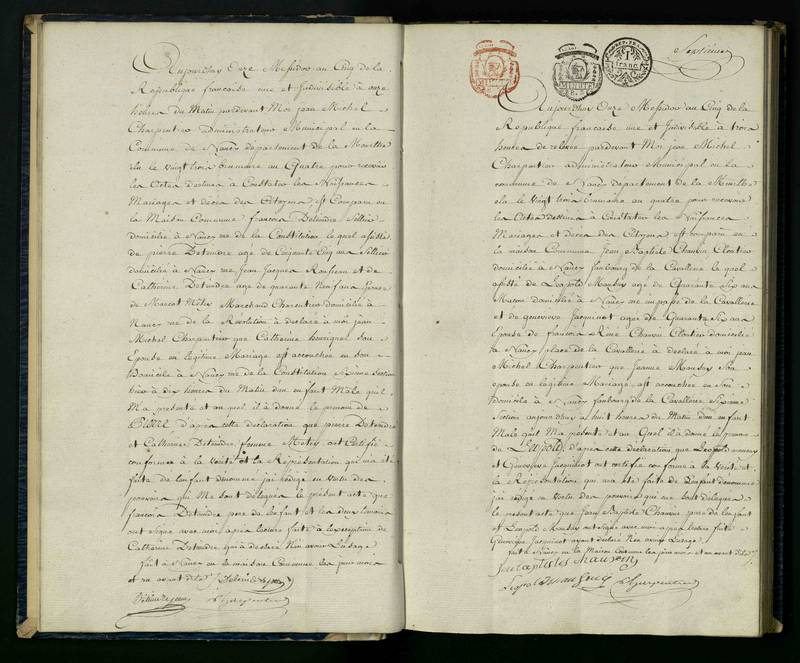 Aujourdhuy Onze Messidor au Cinq de la
République francaise une et Indivisible à onze
heures du Matin pardevant Moi jean Michel
Charpentier administrateur Municipal en la
Commune de Nancy departement de la Meurthe
élu le vingt trois brumaire au Quatre pour recevoir
les Actes destinés à Constater les Naissances
Mariages et deces des Citoyens Est Comparu en
la Maison Commune francois Detendre Sellier
domicilié à Nancy rue de la Constitution lequel assisté
de pierre Detendre agé de Cinquante Cinq ans Sellier
domicilié à Nancy rue Jean Jacques Rousseau et de
Catherine Detendre agée de quarante Neuf ans Epouse
de Marchand Charcutier domiciliée à
Nancy rue de la Révolution à déclaré à moi jean
Michel Charpentier que Catherine henrion Son
Epouse en légitime Mariage est accouchée en Son
Domicile à Nancy rue de la Constitution Section
hier à dix heures du Matin dun enfant Male quil
Ma présenté et au quel il à donné le prenom de
d'apres cette déclaration que pierre Detendre
et Catherine Detendre femme ont Certifié
conforme à la vérité et la Représentation qui ma été
faite de lenfant dénommé jai rédigé en vertu des
pouvoirs qui Me sont délégués le présent acte que
francois Detendre pere de lenfant et les deux témoins
ont Signé avec moi apres lecture faite à lexception de
Catherine Detendre qui à déclaré Nen avoir Lusage
fait à Nancy en la maison Commune les jour mois
et an avant dits
Charpentier
1
franc
Septieme
Aujourdhuy Onze Messidor au Cinq de la
République francaise une et Indivisible à trois
heures de relevée pardevant Moi jean Michel
Charpentier administrateur Municipal en la
commune de Nancy departement de la Meurthe
élu le vingt trois brumaire au quatre pour recevoir
les Actes destinés à Constater les Naissances
Mariages et deces des Citoyens Est comparu en
la maison Commune Jean Baptiste Chauvin Cloutier
domicilié à Nancy faubourg de la Cavallerie le quel
assisté de Léopold Mansuy agé de Quarante Six ans
Macon domicilié à Nancy de la Cavallerie
et de genevieve Jacquinot agée de Quarante Six ans
Epouse de francois Chauvin Cloutier domiciliée
à Nancy place de la Cavallerie à déclaré à moi jean
Michel Charpentier que Jeanne Mansuy Son
epouse en légitime Mariage est accouchée en Son
domicile à Nancy faubourg de la Cavallerie Sixieme
Section aujourdhuy à huit heures du Matin dun enfant
Male quil Ma présenté et au Quel il à donné le prenom
de Léopold, d'apres cette déclaration que Léopold mansuy
et Genevieve Jacquinot ont certifié conforme à la vérité et
la Représentation qui ma été faite de Lenfant dénommé
jai rédigé en vertu des pouvoirs qui me sont délégués
le présent acte que Jean Baptiste Chauvin pere de lenfant
et Léopold Mansuy ont signé avec moi apres lecture faite
Genevieve Jacquinot ayant déclaré Nen avoir Lusage
fait à Nancy en la Maison Commune les jour mois et an avant dits
Jean baptiste chauvin
Leopold mansuy Charpentier